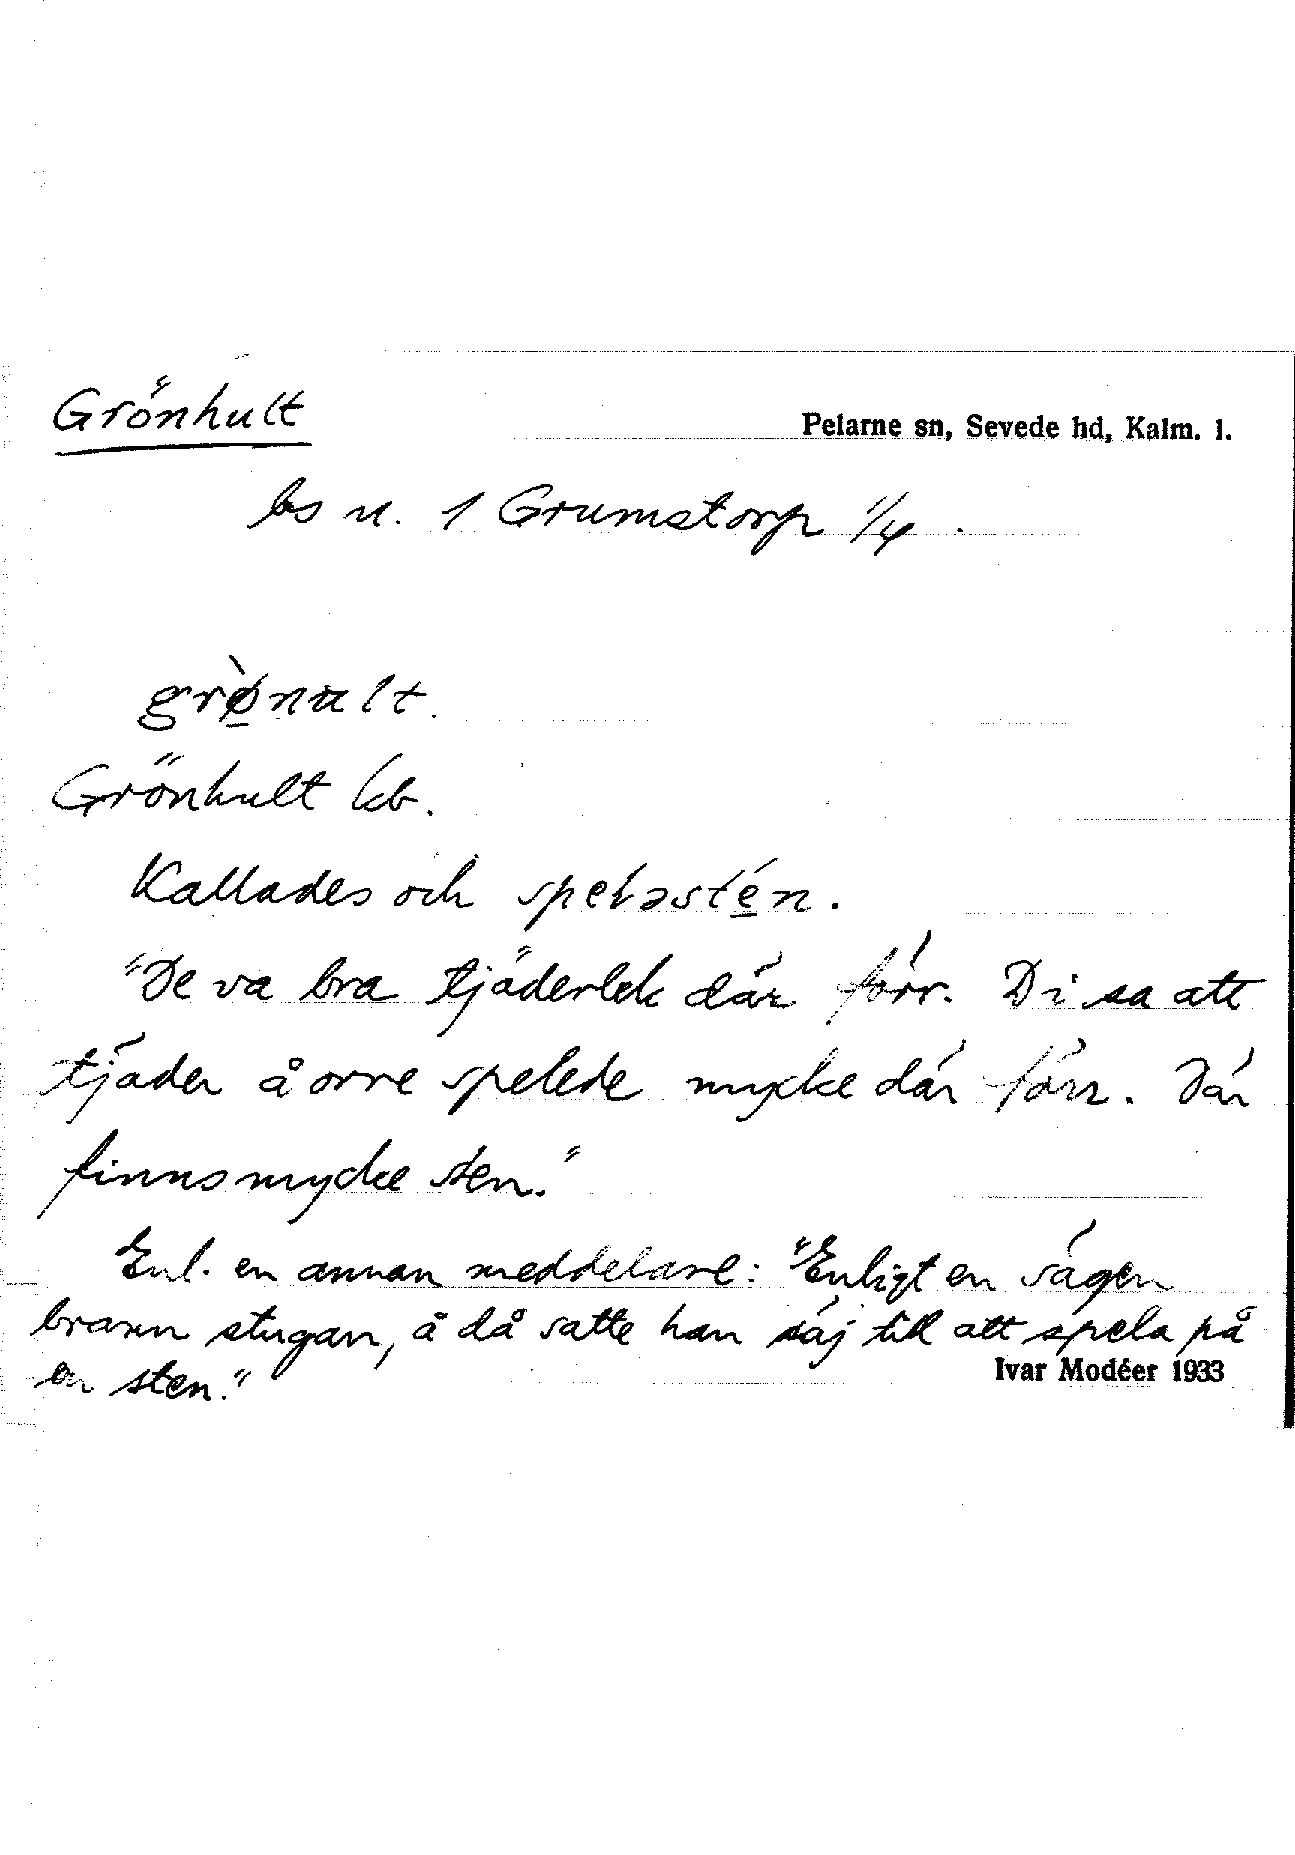 Grönhult
Pelarne sn, Sevede hd, Kalm. l.
bs u. 1 Grumstorp 1/4.
grø̀nult.
Grönhult kb.
Kallades och speləstén.
"De va bra tjäderlek där förr. Di sa att
tjäder å orre spelede mycke där förr. Där
finns mycke sten."
Enl. en annan meddelare: "Enligt en sägen
brann stugan, å då satte han säj till att spela på
en sten."
Ivar Modéer 1933